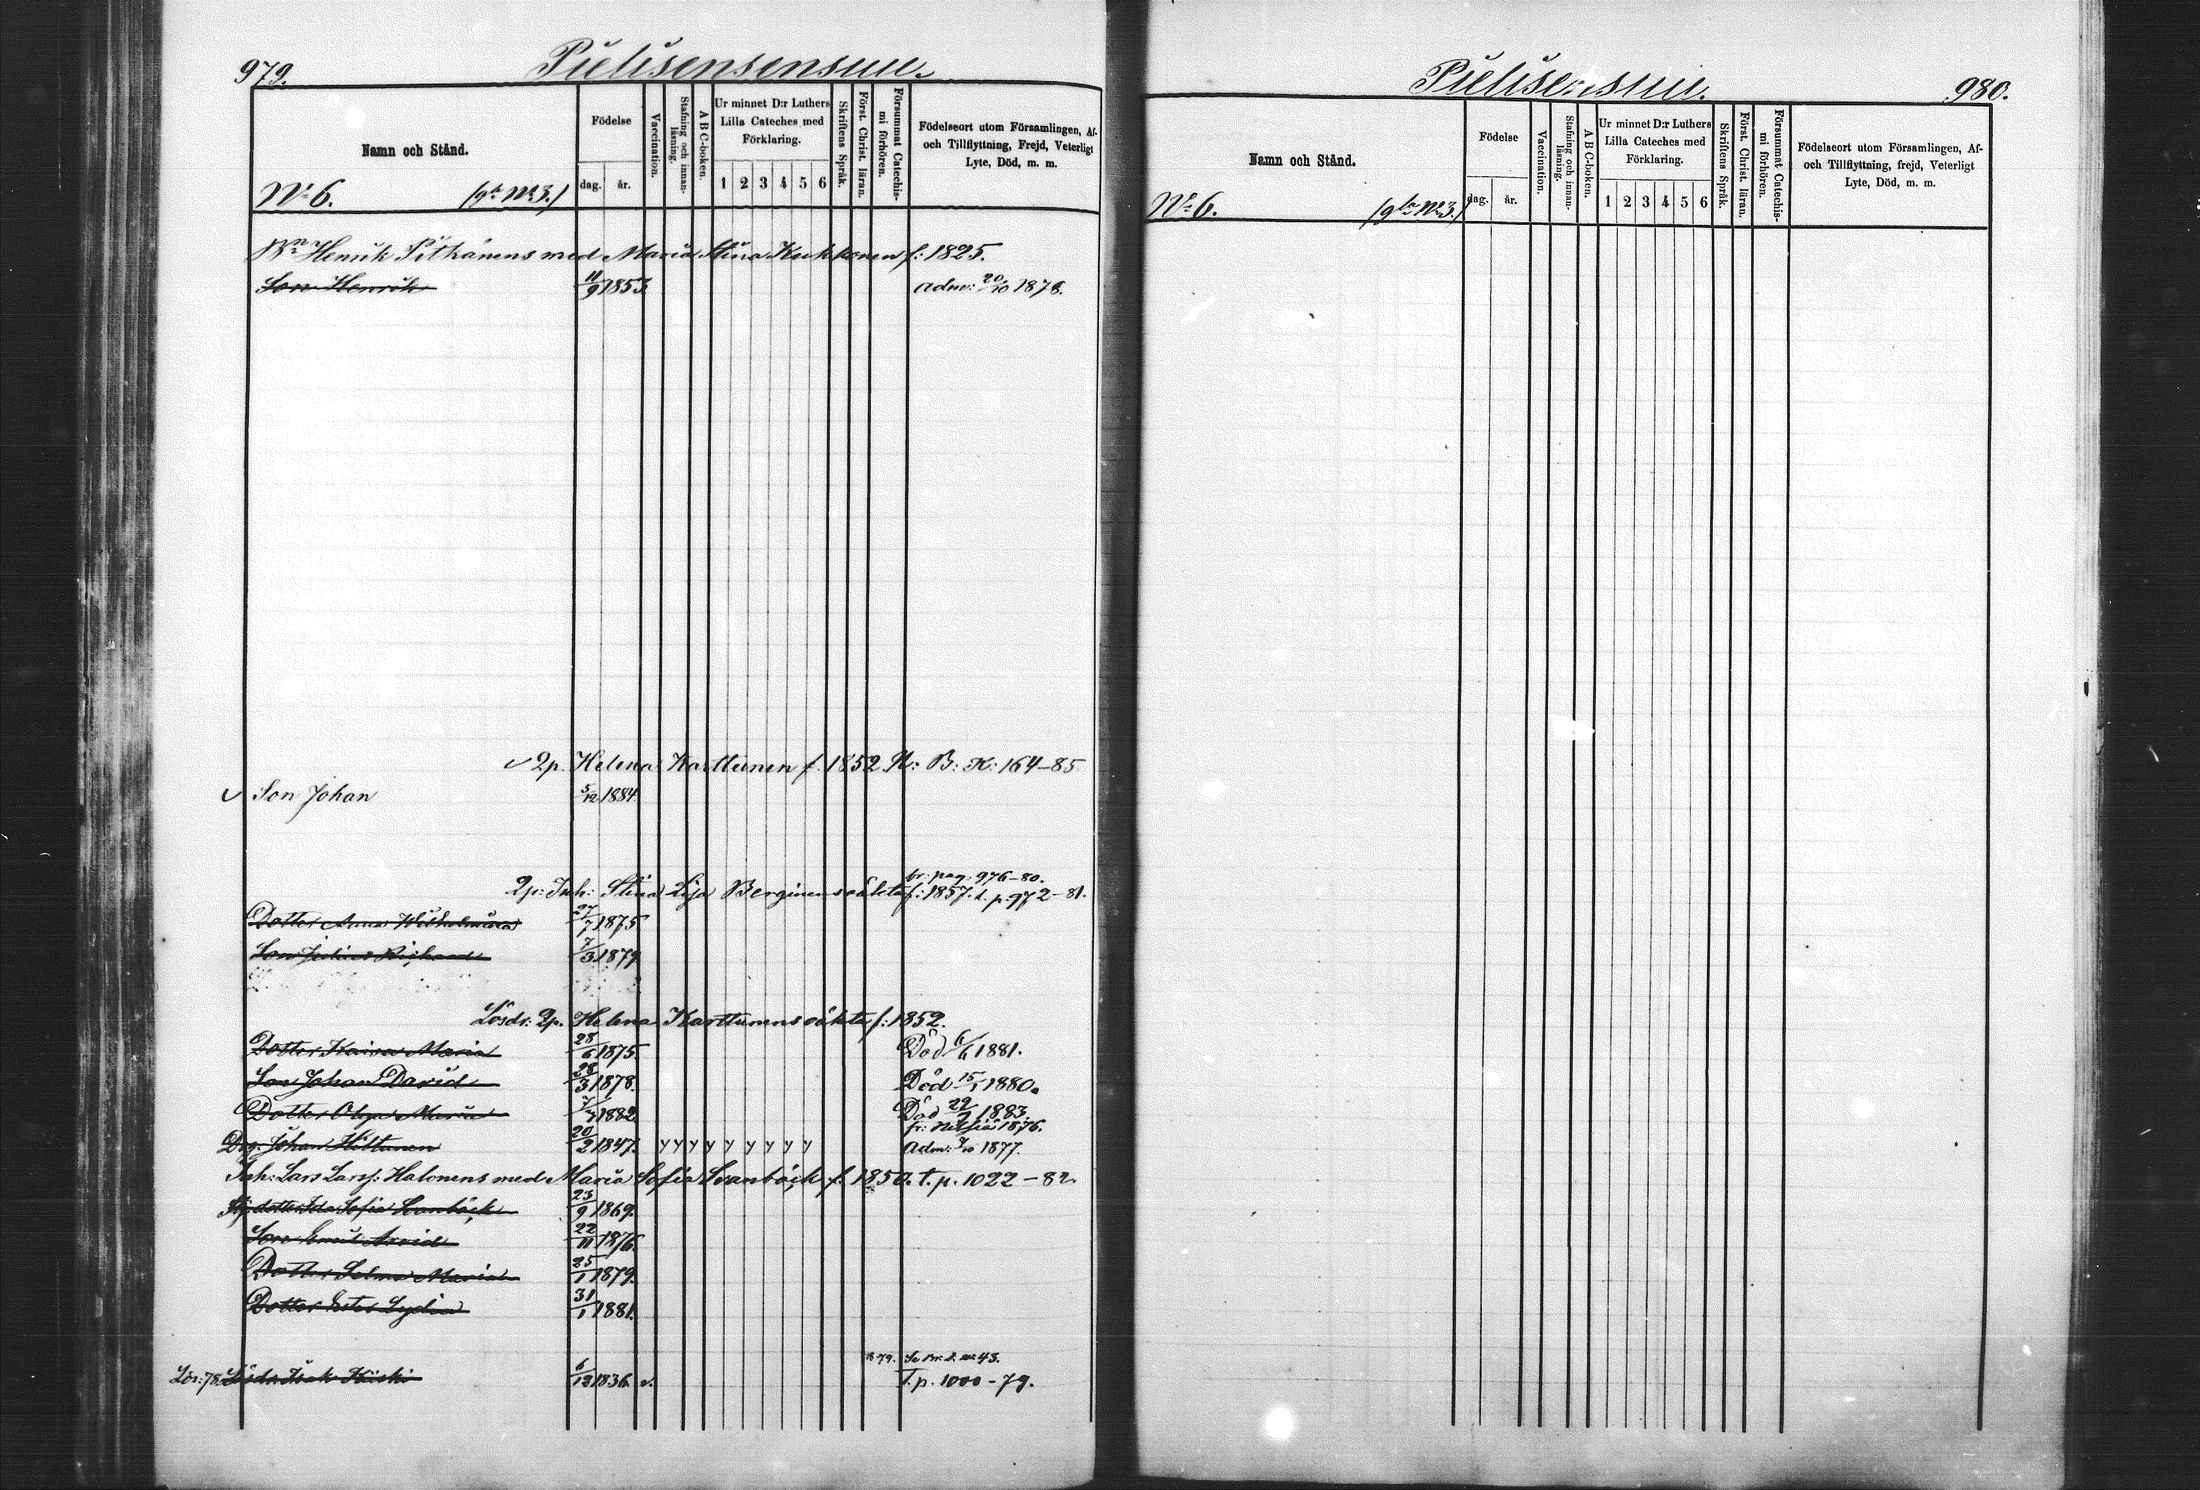 979.
Pielisensuu.
Namn och Stånd.
Födelse
dag. år.
Vaccination.
Stafning och innanläsning.
A B C-boken.
Ur minnet D:r Luthers Lilla Cateches med Förklaring.
1 2 3 4 5 6
Skriftens Språk.
Först. Christ. läran.
Försummat Catechismi förhören.
Födelseort utom Församlingen, Af- och Tillflyttning, Frejd, Veterligt Lyte, Död, m. m.
N:o 6. (gla N:o 3.)
Henrik Pitkänens med Maria Stina Kukkonen f: 1825.
Son Henrik 11/9 1853. adm: 20/10 1878.
Qp. Helena Karttunen f. 1852. K: B: K: 164-85
Son Johan 5/12 1884
fr: pag: 976-80.
Qp: Inh: Stina Lisa Berginens oäkta f: 1857. t. p. 972-81.
Dotter Anna Wilhelmina 27/7 1875
Son Julius Richard 7/3 1879
Lösdr: Qp. Helena Karttunens oäkta f: 1852.
Dotter Kaisa Maria 28/6 1875. Död 6/6 1881.
Son Johan David 28/3 1878. Död 15/1 1880.
Dotter Olga Maria 7/7 1882 Död 29/7 1883.
fr: Nilsiä 1876.
Drg: Johan Hiltunen 20/2 1847. y y y y y y y y y adm: 9/10 1877.
Inh: Lars Larsf: Halonens med Maria Sofia Svanbäck f. 1850. t. p. 1022-82
dotter Ida Sofia Svanbäck 23/9 1869.
Son Emil Arvid 22/11 1876.
Dotter Selma Maria 25/1 1879.
Dotter Ester Lydia 31/1 1881.
1879. Se Br. d. N:o 43.
Lös: 78 Lösdr. Isak Kiiski 6/12 1836 v. T. p. 1000-79.
Pielisensuu.
980.
Namn och Stånd.
Födelse
dag. år.
Vaccination.
Stafning och innanläsning.
A B C-boken.
Ur minnet D:r Luthers Lilla Cateches med Förklaring.
1 2 3 4 5 6
Skriftens Språk.
Först. Christ. läran.
Försummat Catechismi förhören.
Födelseort utom Församlingen, Af- och Tillflyttning, frejd, Veterligt Lyte, Död, m. m.
N:o 6. (gla N:o 3.)